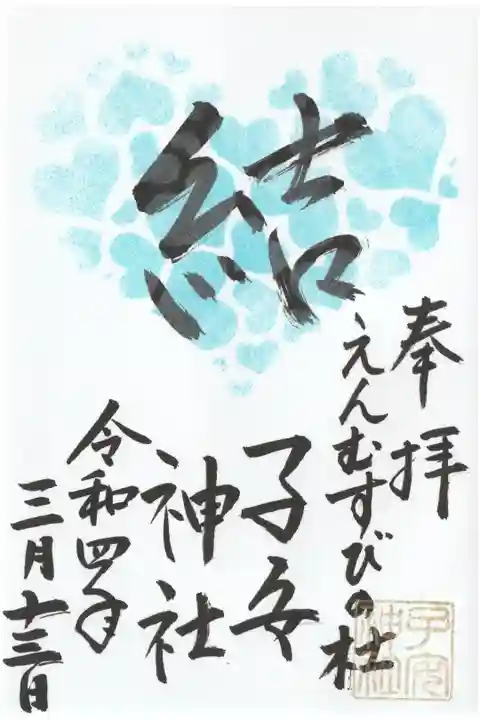 奉拝
えんむすびの杜
結
子安
神社
令和四年
三月十三日
子安
神社